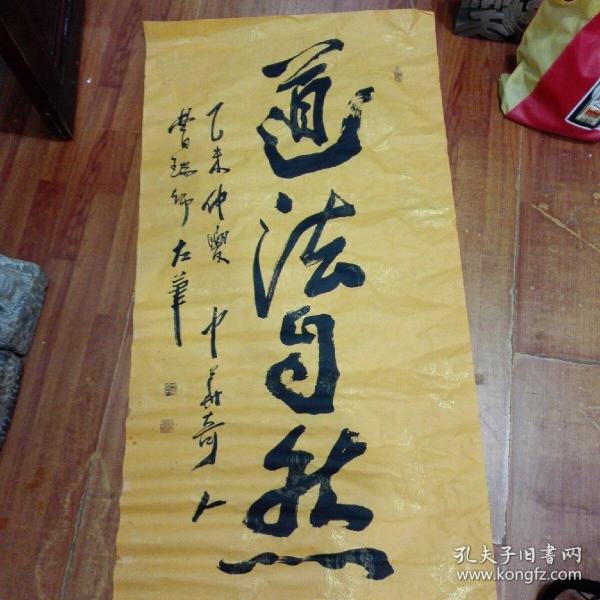 道法自然
乙未仲夏 中华奇人
曹瑞师左笔
孔夫子旧书网
www.kongfz.com